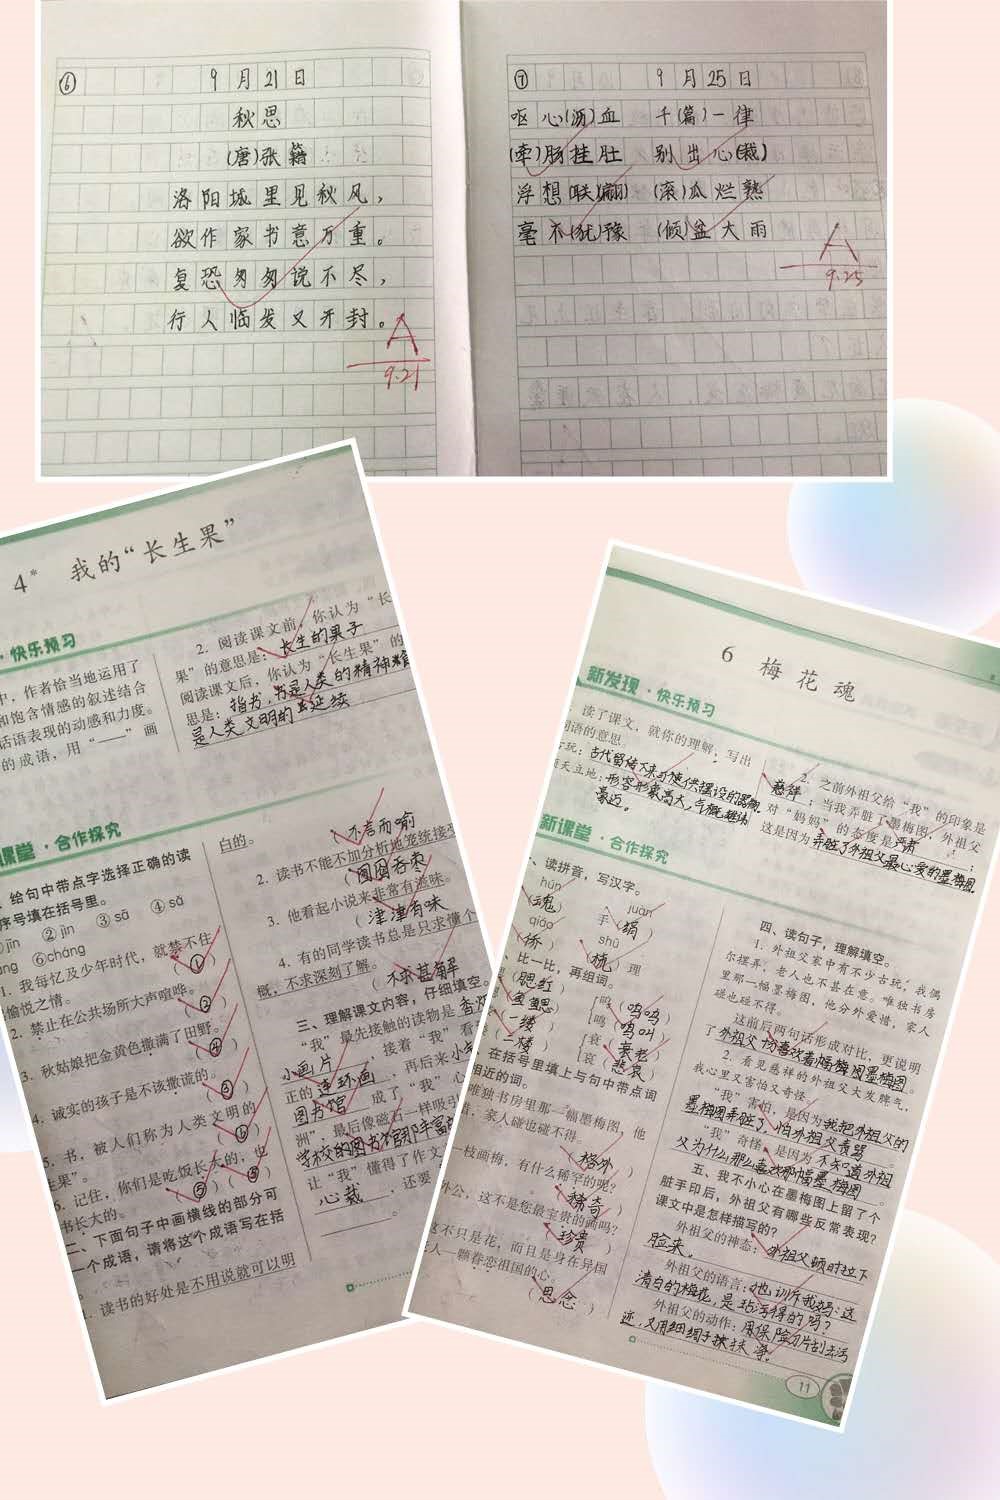 ⑥ 9月21日
秋思
(唐)张籍
洛阳城里见秋风，
欲作家书意万重。
复恐匆匆说不尽，
行人临发又开封。
A
9.21
⑦ 9月25日
呕心(沥)血 千(篇)一律
(牵)肠挂肚 别出心(裁)
浮想(联)(翩) (滚)瓜烂熟
毫不(犹)豫 (倾)盆大雨
A
9.25
4* 我的“长生果”
·快乐预习
中，作者恰当地运用了
和饱含情感的叙述结合
话语表现的动感和力度。
的成语，用“——”画
2. 阅读课文前，你认为“长
果”的意思是：长生的果子
阅读课文后，你认为“长生果”的
思是：指书，书是人类的精神粮
是人类文明的延续
课堂·合作探究
给句中带点字选择正确的读
序号填在括号里。
①jīn ②jìn ③sā ④sǎ
⑥cháng
1. 我每忆及少年时代，就禁不住
愉悦之情。 (①)
2. 禁止在公共场所大声喧哗。
(②)
3. 秋姑娘把金黄色撒满了田野。
(④)
4. 诚实的孩子是不该撒谎的。
(③)
5. 书，被人们称为人类文明的
生果”。 (⑥)
6. 记住，你们是吃饭长大的，也
书长大的。 (⑤)
二、下面句子中画横线的部分可
一个成语，请将这个成语写在括
1. 读书的好处是不用说就可以明
白的。 (不言而喻
2. 读书不能不加分析地笼统接受
(囫囵吞枣
3. 他看起小说来非常有滋味。
(津津有味
4. 有的同学读书总是只求懂个
概，不求深刻了解。
(不求甚解
三、理解课文内容，仔细填空。
“我”最先接触的读物是香烟
小画片，接着“我”看
正的连环画，再后来小镇
图书馆成了“我”心
洲”，最后像磁石一样吸引
让“我”懂得了作文
心裁，还要
6 梅花魂
新发现·快乐预习
读了课文，就你的理解，写出
词语的意思。
古玩：古代留传下来可供摆设的器物。
顶天立地：形容形象高大，气概雄伟
豪迈。
2. 之前外祖父给“我”的印象是
慈祥；当我弄脏了墨梅图，外祖父
对“妈妈”的态度是严肃；
这是因为弄脏了外祖父最心爱的墨梅图。
新课堂·合作探究
一、读拼音，写汉字。
hún juàn
(魂) 手(绢)
qiáo shū
(侨) (梳)理
二、比一比，再组词。
(腮红) 呜(呜呜)
(鱼鳃) 鸣(鸣叫)
(一缕) 衰(衰老)
(二楼) 哀(悲哀)
在括号里填上与句中带点词
相近的词。
唯独书房里那一幅墨梅图，他
惜，家人碰也碰不得。
(格外)
一枝画梅，有什么稀罕的呢？
(稀奇)
外公，这不是您最宝贵的画吗？
(珍贵)
这不只是花，而且是身在异国
人一颗眷恋祖国的心。
(思念)
四、读句子，理解填空。
1. 外祖父家中有不少古玩，我偶
尔摆弄，老人也不甚在意。唯独书房
里那一幅墨梅图，他分外爱惜，家人
碰也碰不得。
这前后两句话形成对比，更说明
了外祖父十分喜欢着幅梅图墨梅图。
2. 看见慈祥的外祖父大发脾气，
我心里又害怕又奇怪。
“我”害怕，是因为我把外祖父的
墨梅图弄脏了，怕外祖父责骂
“我”奇怪，是因为不知道外祖
父为什么那么喜欢那幅墨梅图
五、我不小心在墨梅图上留了个
脏手印后，外祖父有哪些反常表现？
课文中是怎样描写的？
外祖父的神态：外祖父顿时拉下
脸来。
外祖父的语言：他训斥我妈：这
清白的梅花，是玷污得的吗？
外祖父的动作：用保险刀片刮去污
迹，又用细绸子抹抹净。
11